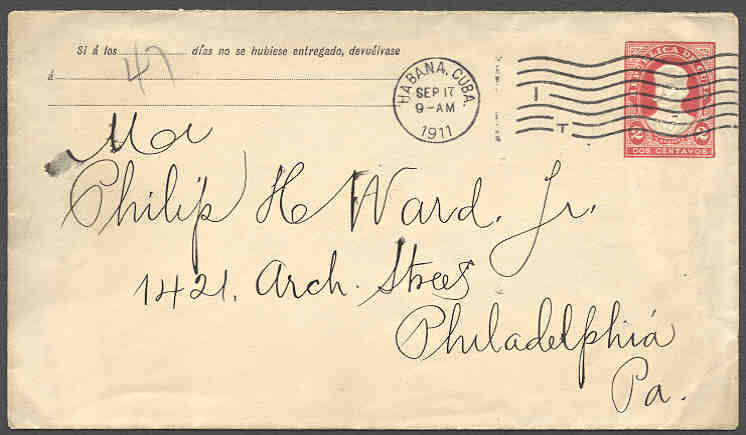 Si á los días no se hubiese entregado, devuélvase
á
47
HABANA, CUBA.
SEP 17
9-AM
1911
I
T
REPUBLICA DE CUBA
2 2
DOS CENTAVOS
Mr
Philip H Ward. Jr.
1421. Arch. Street
Philadelphia
Pa.